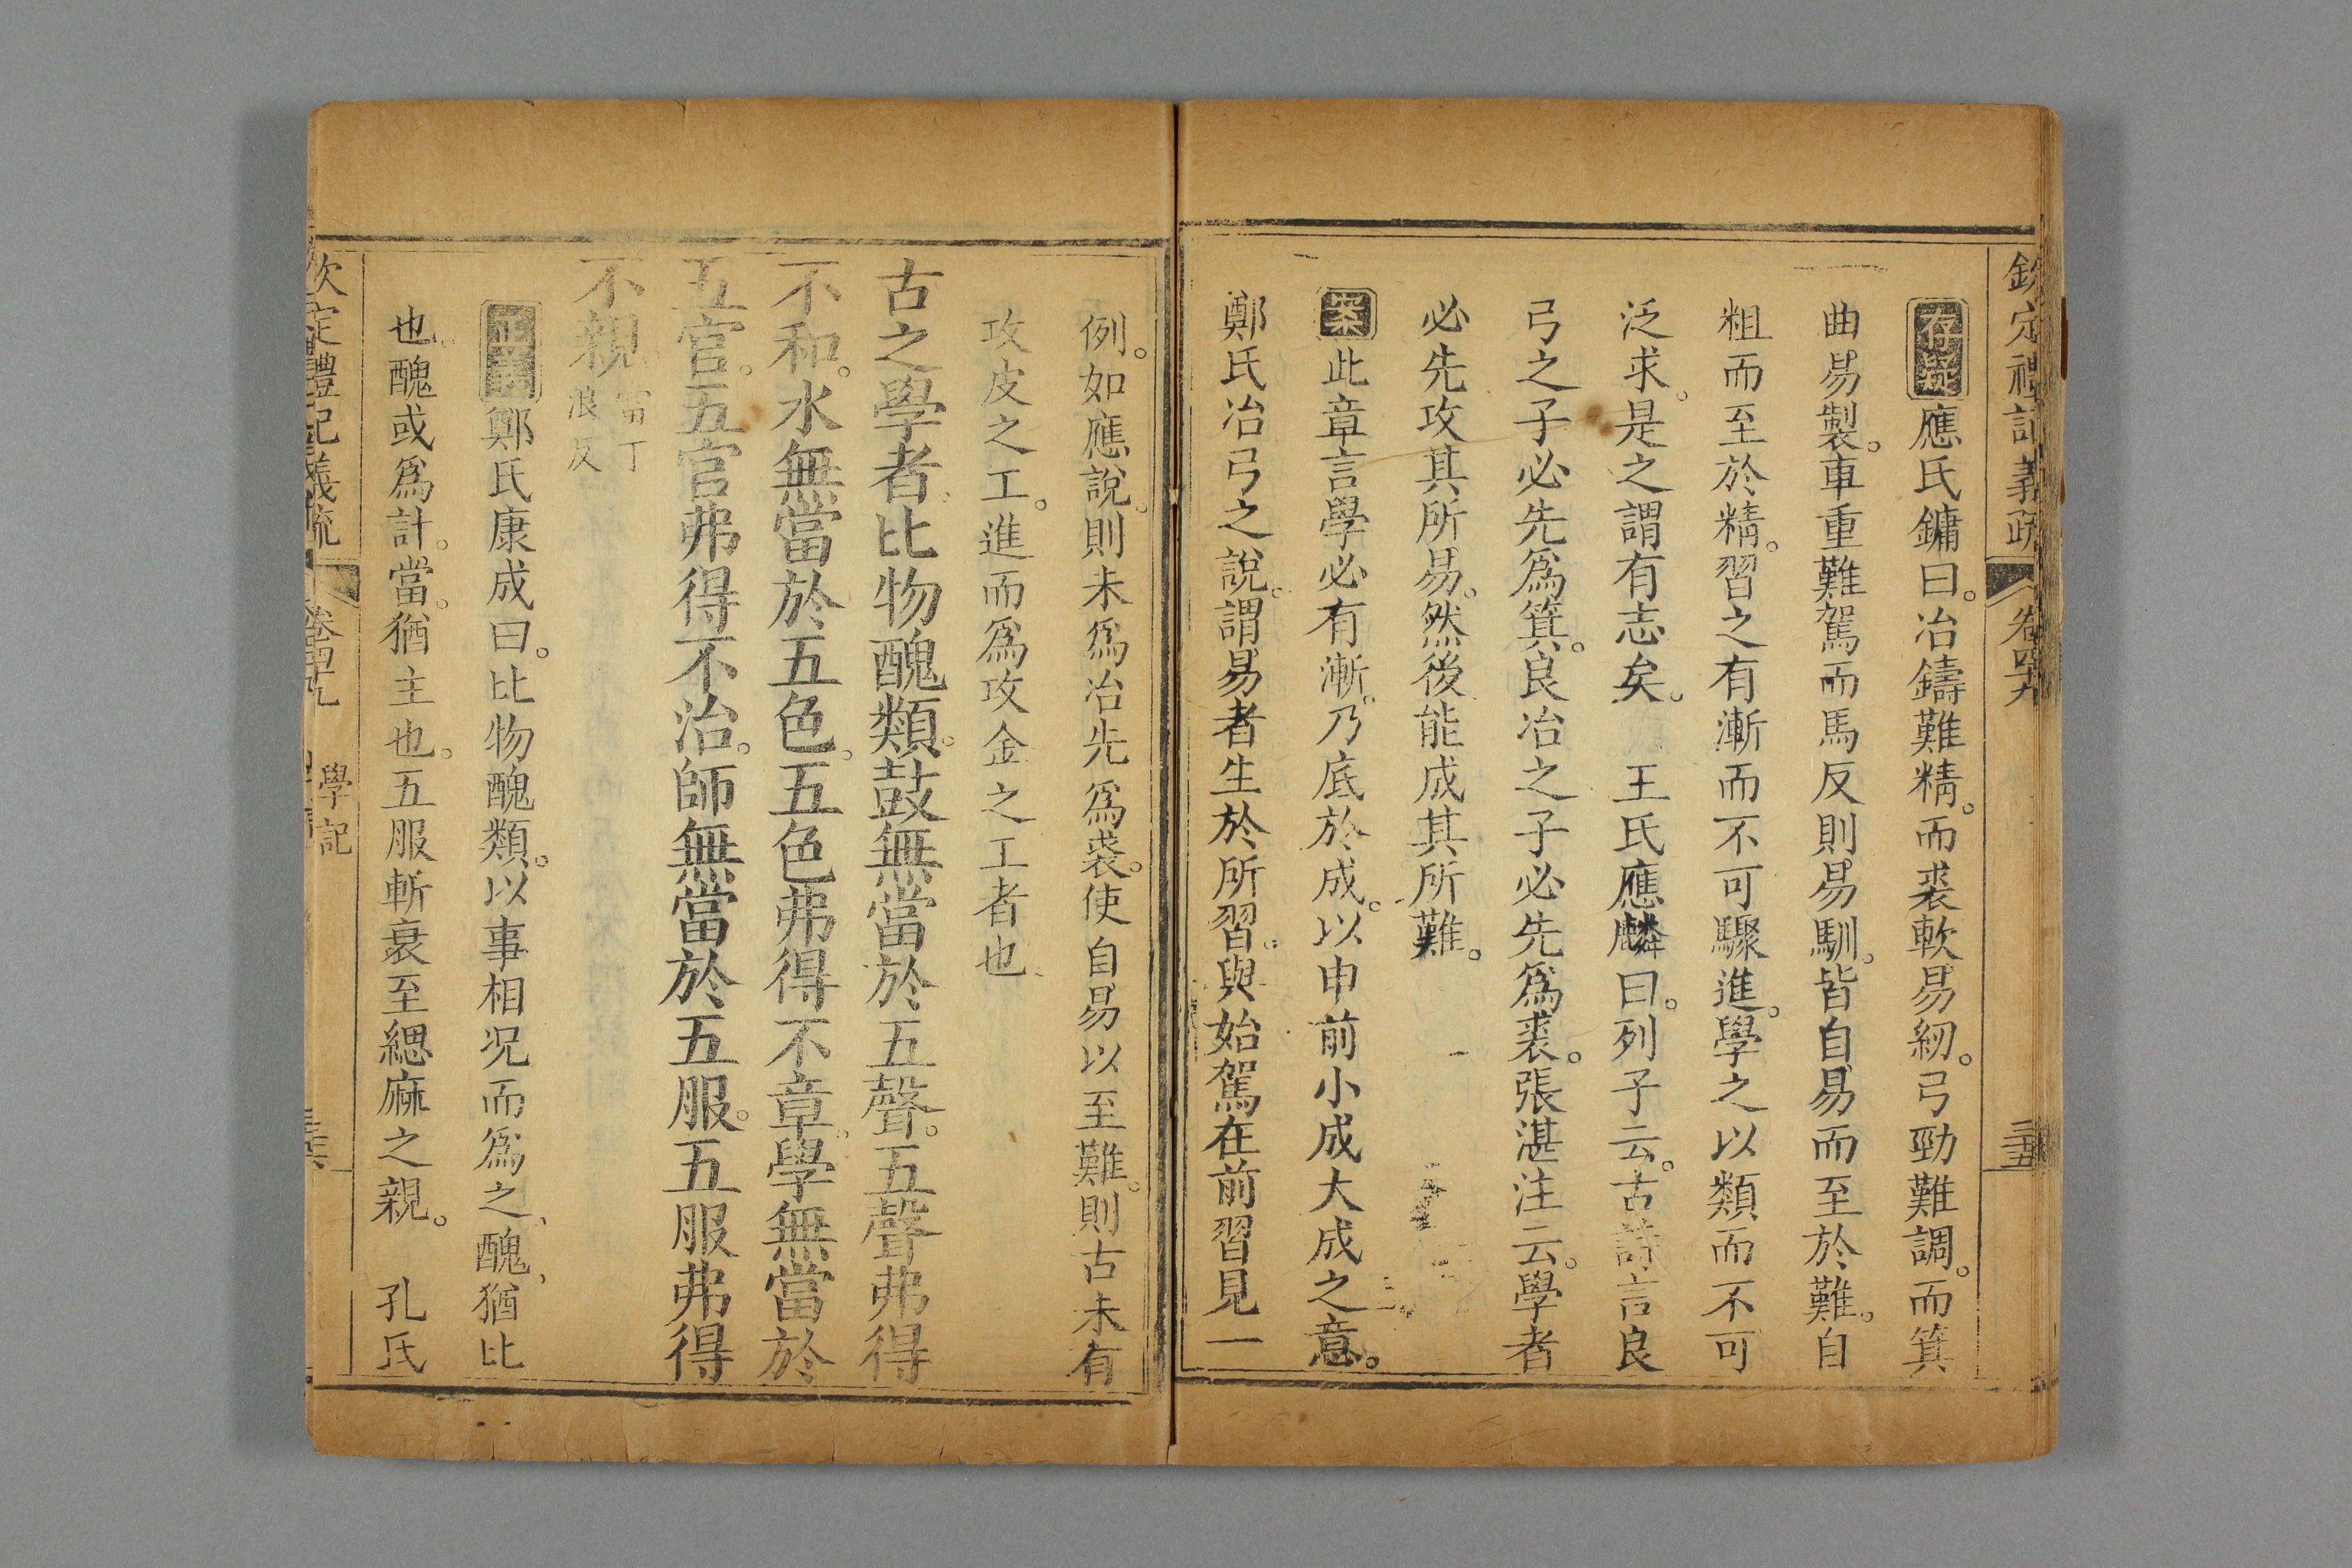 欽定禮記義疏 卷四十九 三五
存疑應氏鏞曰。冶鑄難精。而裘軟易紉。弓勁難調。而箕
曲易製。車重難駕而馬反則易馴。皆自易而至於難。自
粗而至於精。習之有漸而不可驟進。學之以類而不可
泛求。是之謂有志矣。 王氏應麟曰。列子云。古詩言良
弓之子必先爲箕。良冶之子必先爲裘。張湛注云。學者
必先攻其所易。然後能成其所難。
案此章言學必有漸。乃底於成。以申前小成大成之意。
鄭氏冶弓之說。謂易者生於所習。與始駕在前習見一
例。如應說。則未爲冶先爲裘。使自易以至難。則古未有
攻皮之工。進而爲攻金之工者也
古之學者。比物醜類。鼓無當於五聲。五聲弗得
不和。水無當於五色。五色弗得不章。學無當於
五官。五官弗得不治。師無當於五服。五服弗得
不親 當丁浪反
正義鄭氏康成曰。比物醜類。以事相况而爲之、醜、猶比
也。醜或爲計。當。猶主也。五服斬衰至緦麻之親。 孔氏
欽定禮記義疏 卷四十九 學記 三六